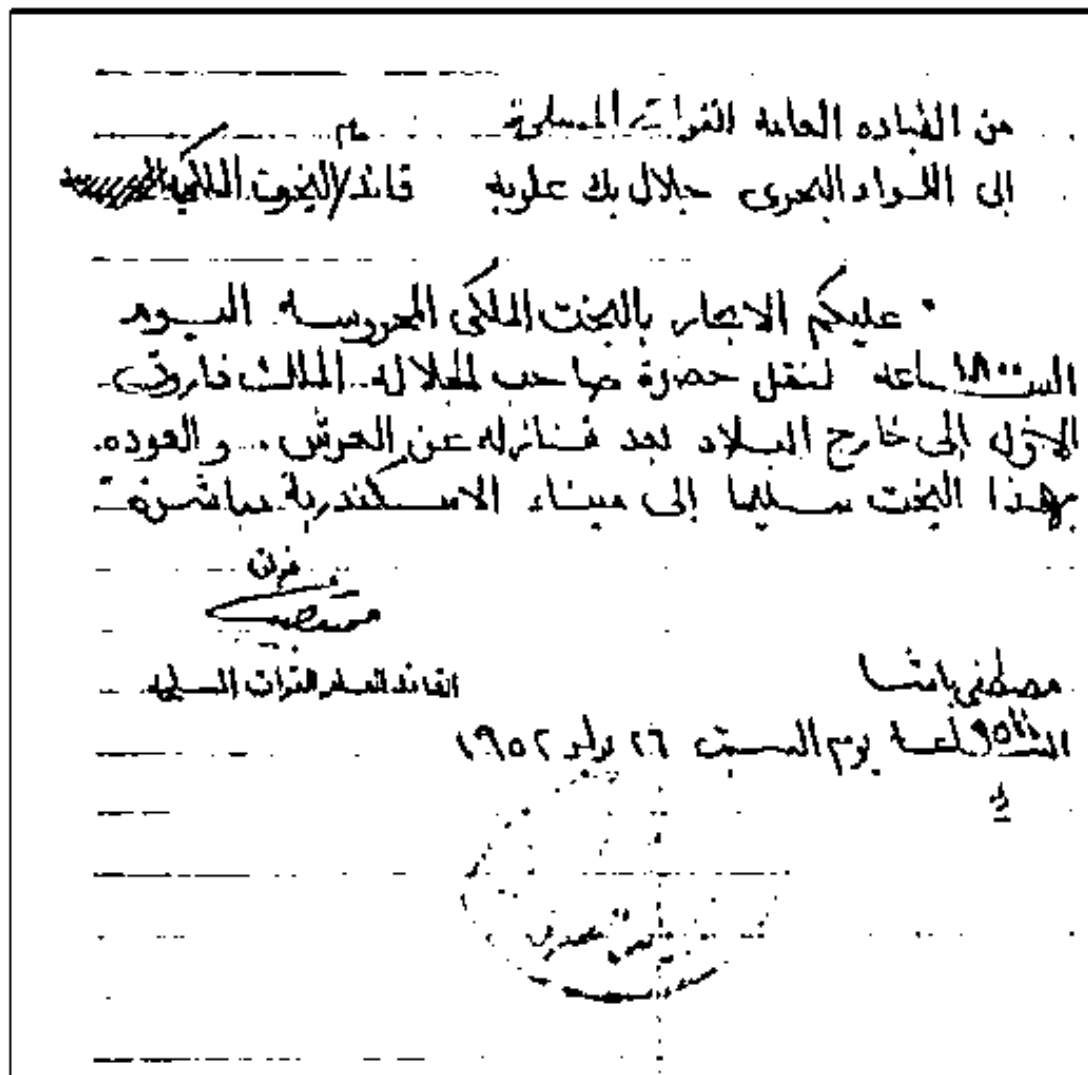 من القياده العامه القوات المسلحة
الى اللواء البحرى جلال بك علوبه قائد عام/اليخوت الملكية
عليكم الابحار باليخت الملكى المحروسه اليوم
الساعه ١٨٠٠ لنقل حضرة صاحب الجلاله الملك فاروق
الاول إلى خارج البلاد بعد تنازله عن العرش .. والعوده
بهذا اليخت سليما إلى ميناء الاسكندرية مباشرة
القائد العام القوات المسلحه
مصطفى باشا
الساعة يوم السبت ٢٦ يوليو ١٩٥٢